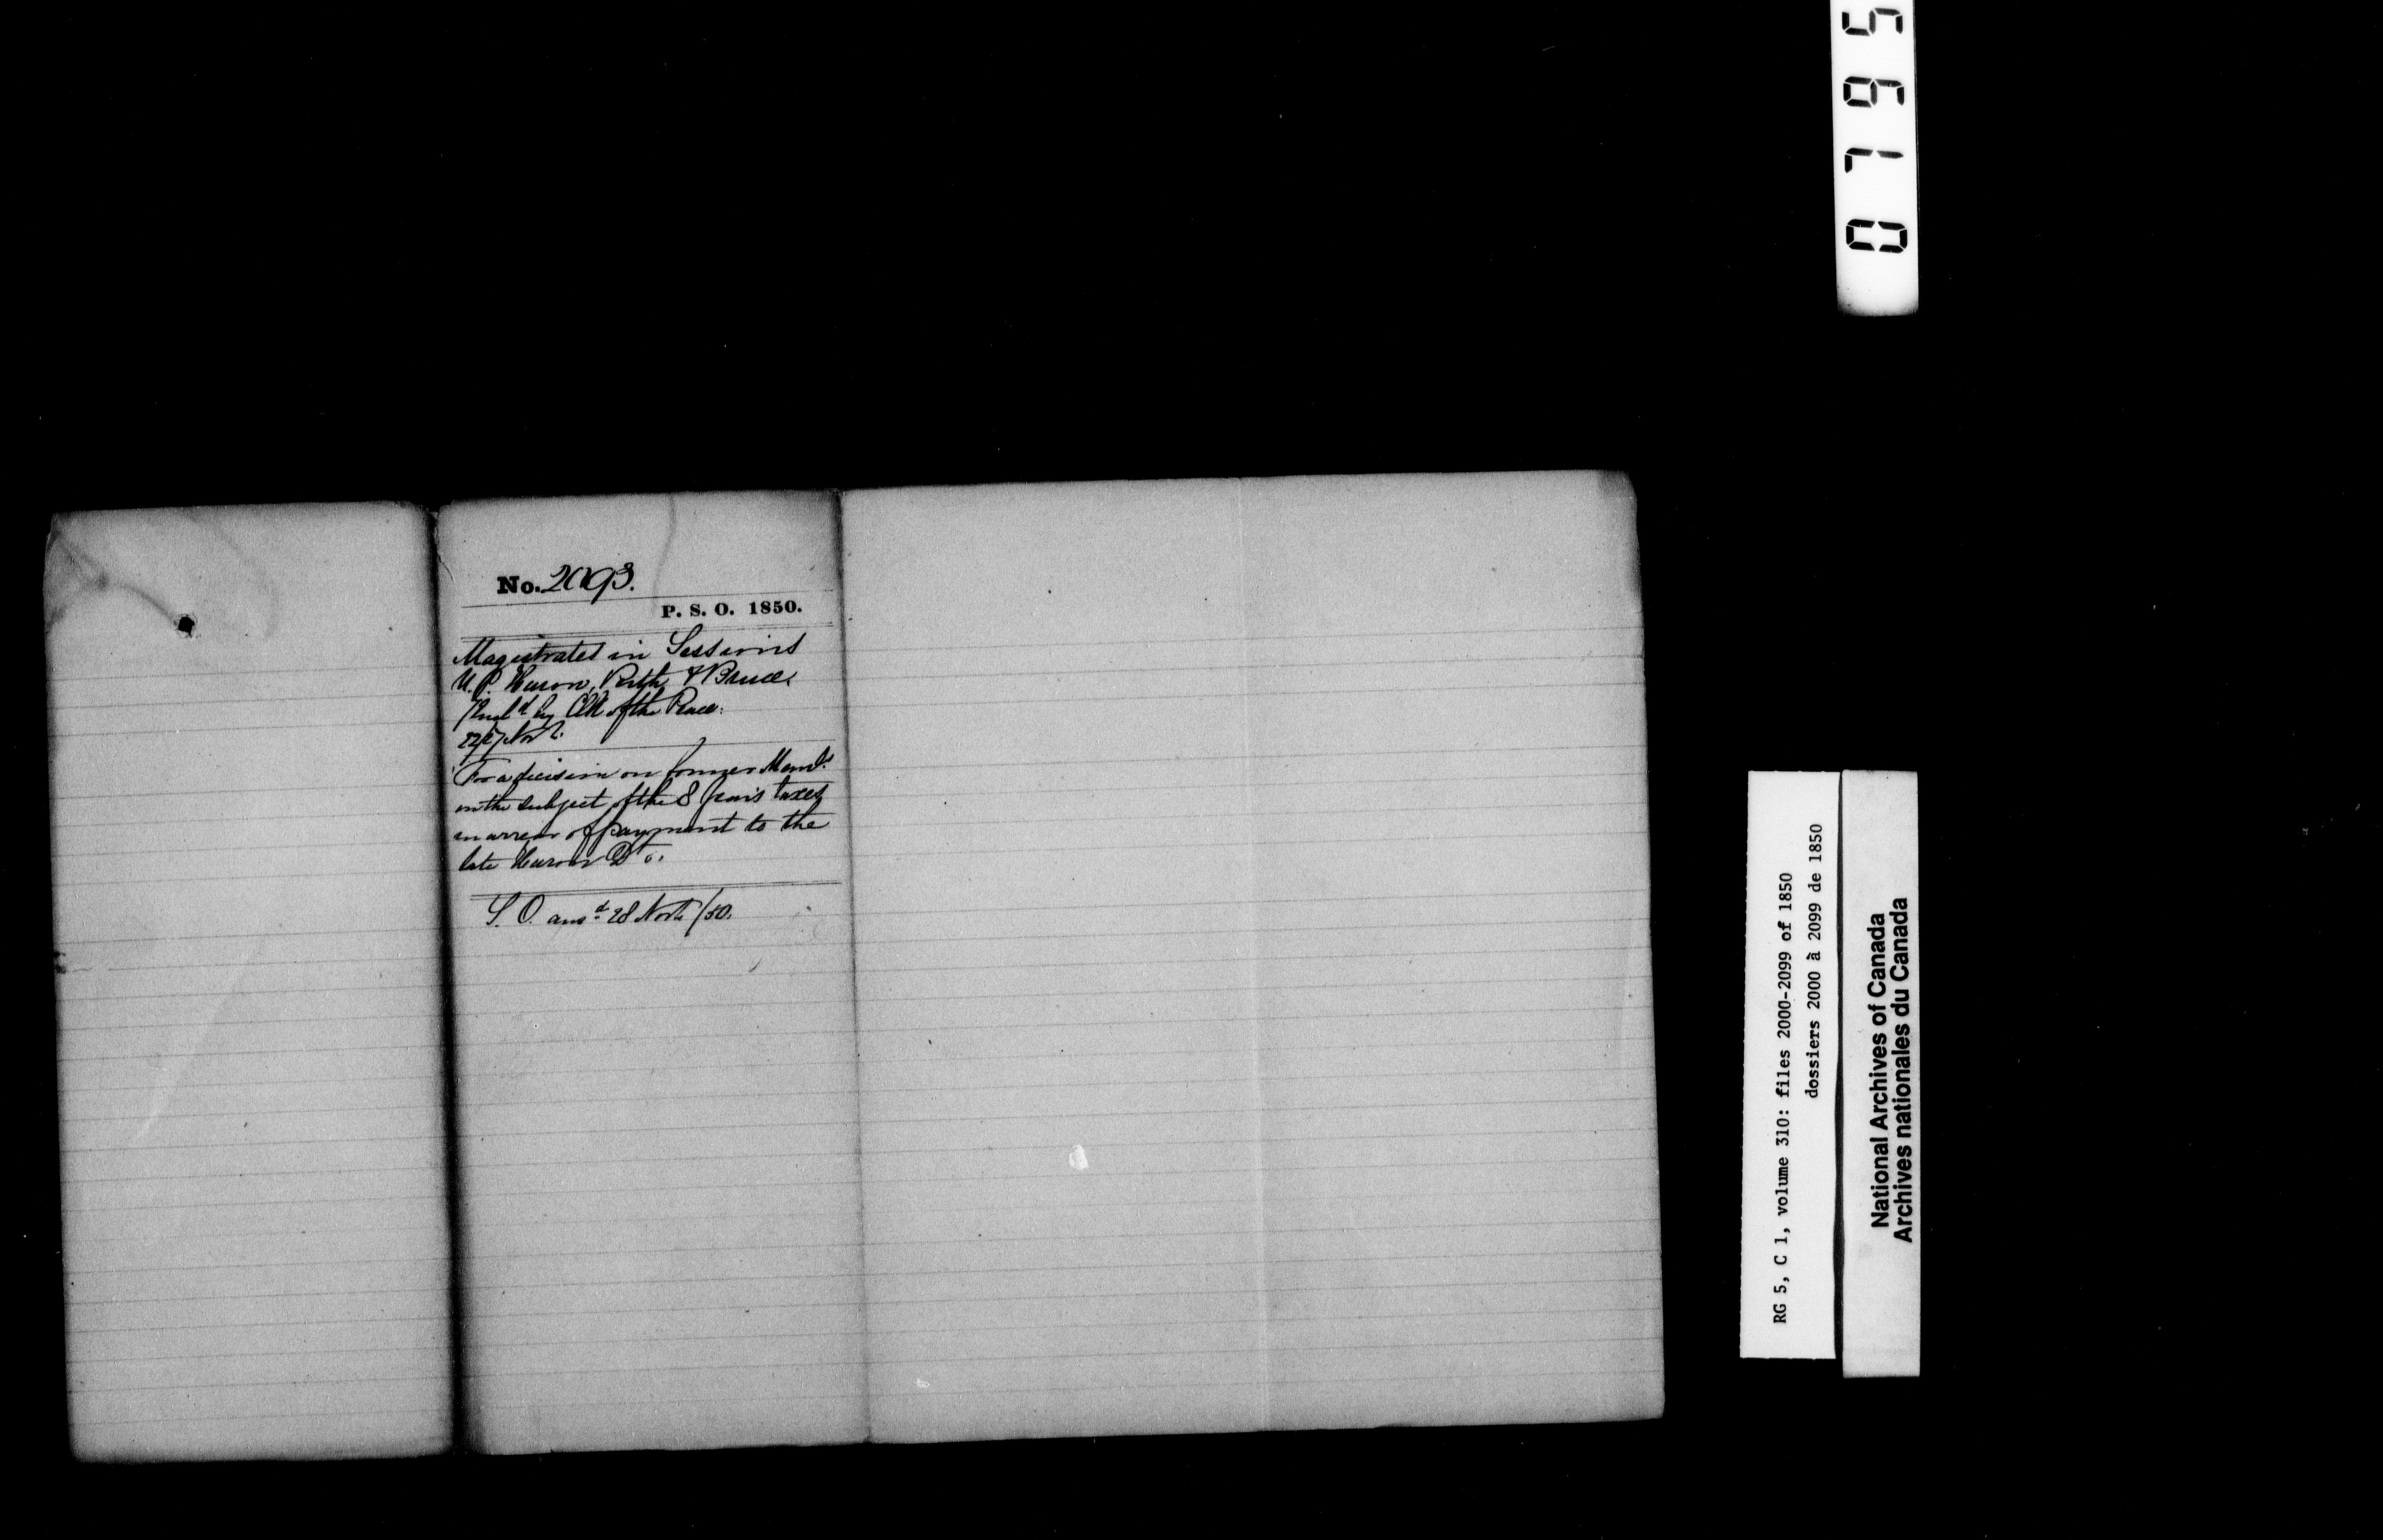 No. 2093.
P. S. O. 1850.
Magistrates in Sessions
U. C. Huron, Perth & Bruce,
by Clk of the Peace.
Novr.
For a decision on former Meml.
on the subject of the 8 years taxes
in arrear of payment to the
late Huron Dt.
S. O. ansd. 28 Novr/50.
0795
RG 5, C 1, volume 310: files 2000-2099 of 1850
dossiers 2000 à 2099 de 1850
National Archives of Canada
Archives nationales du Canada